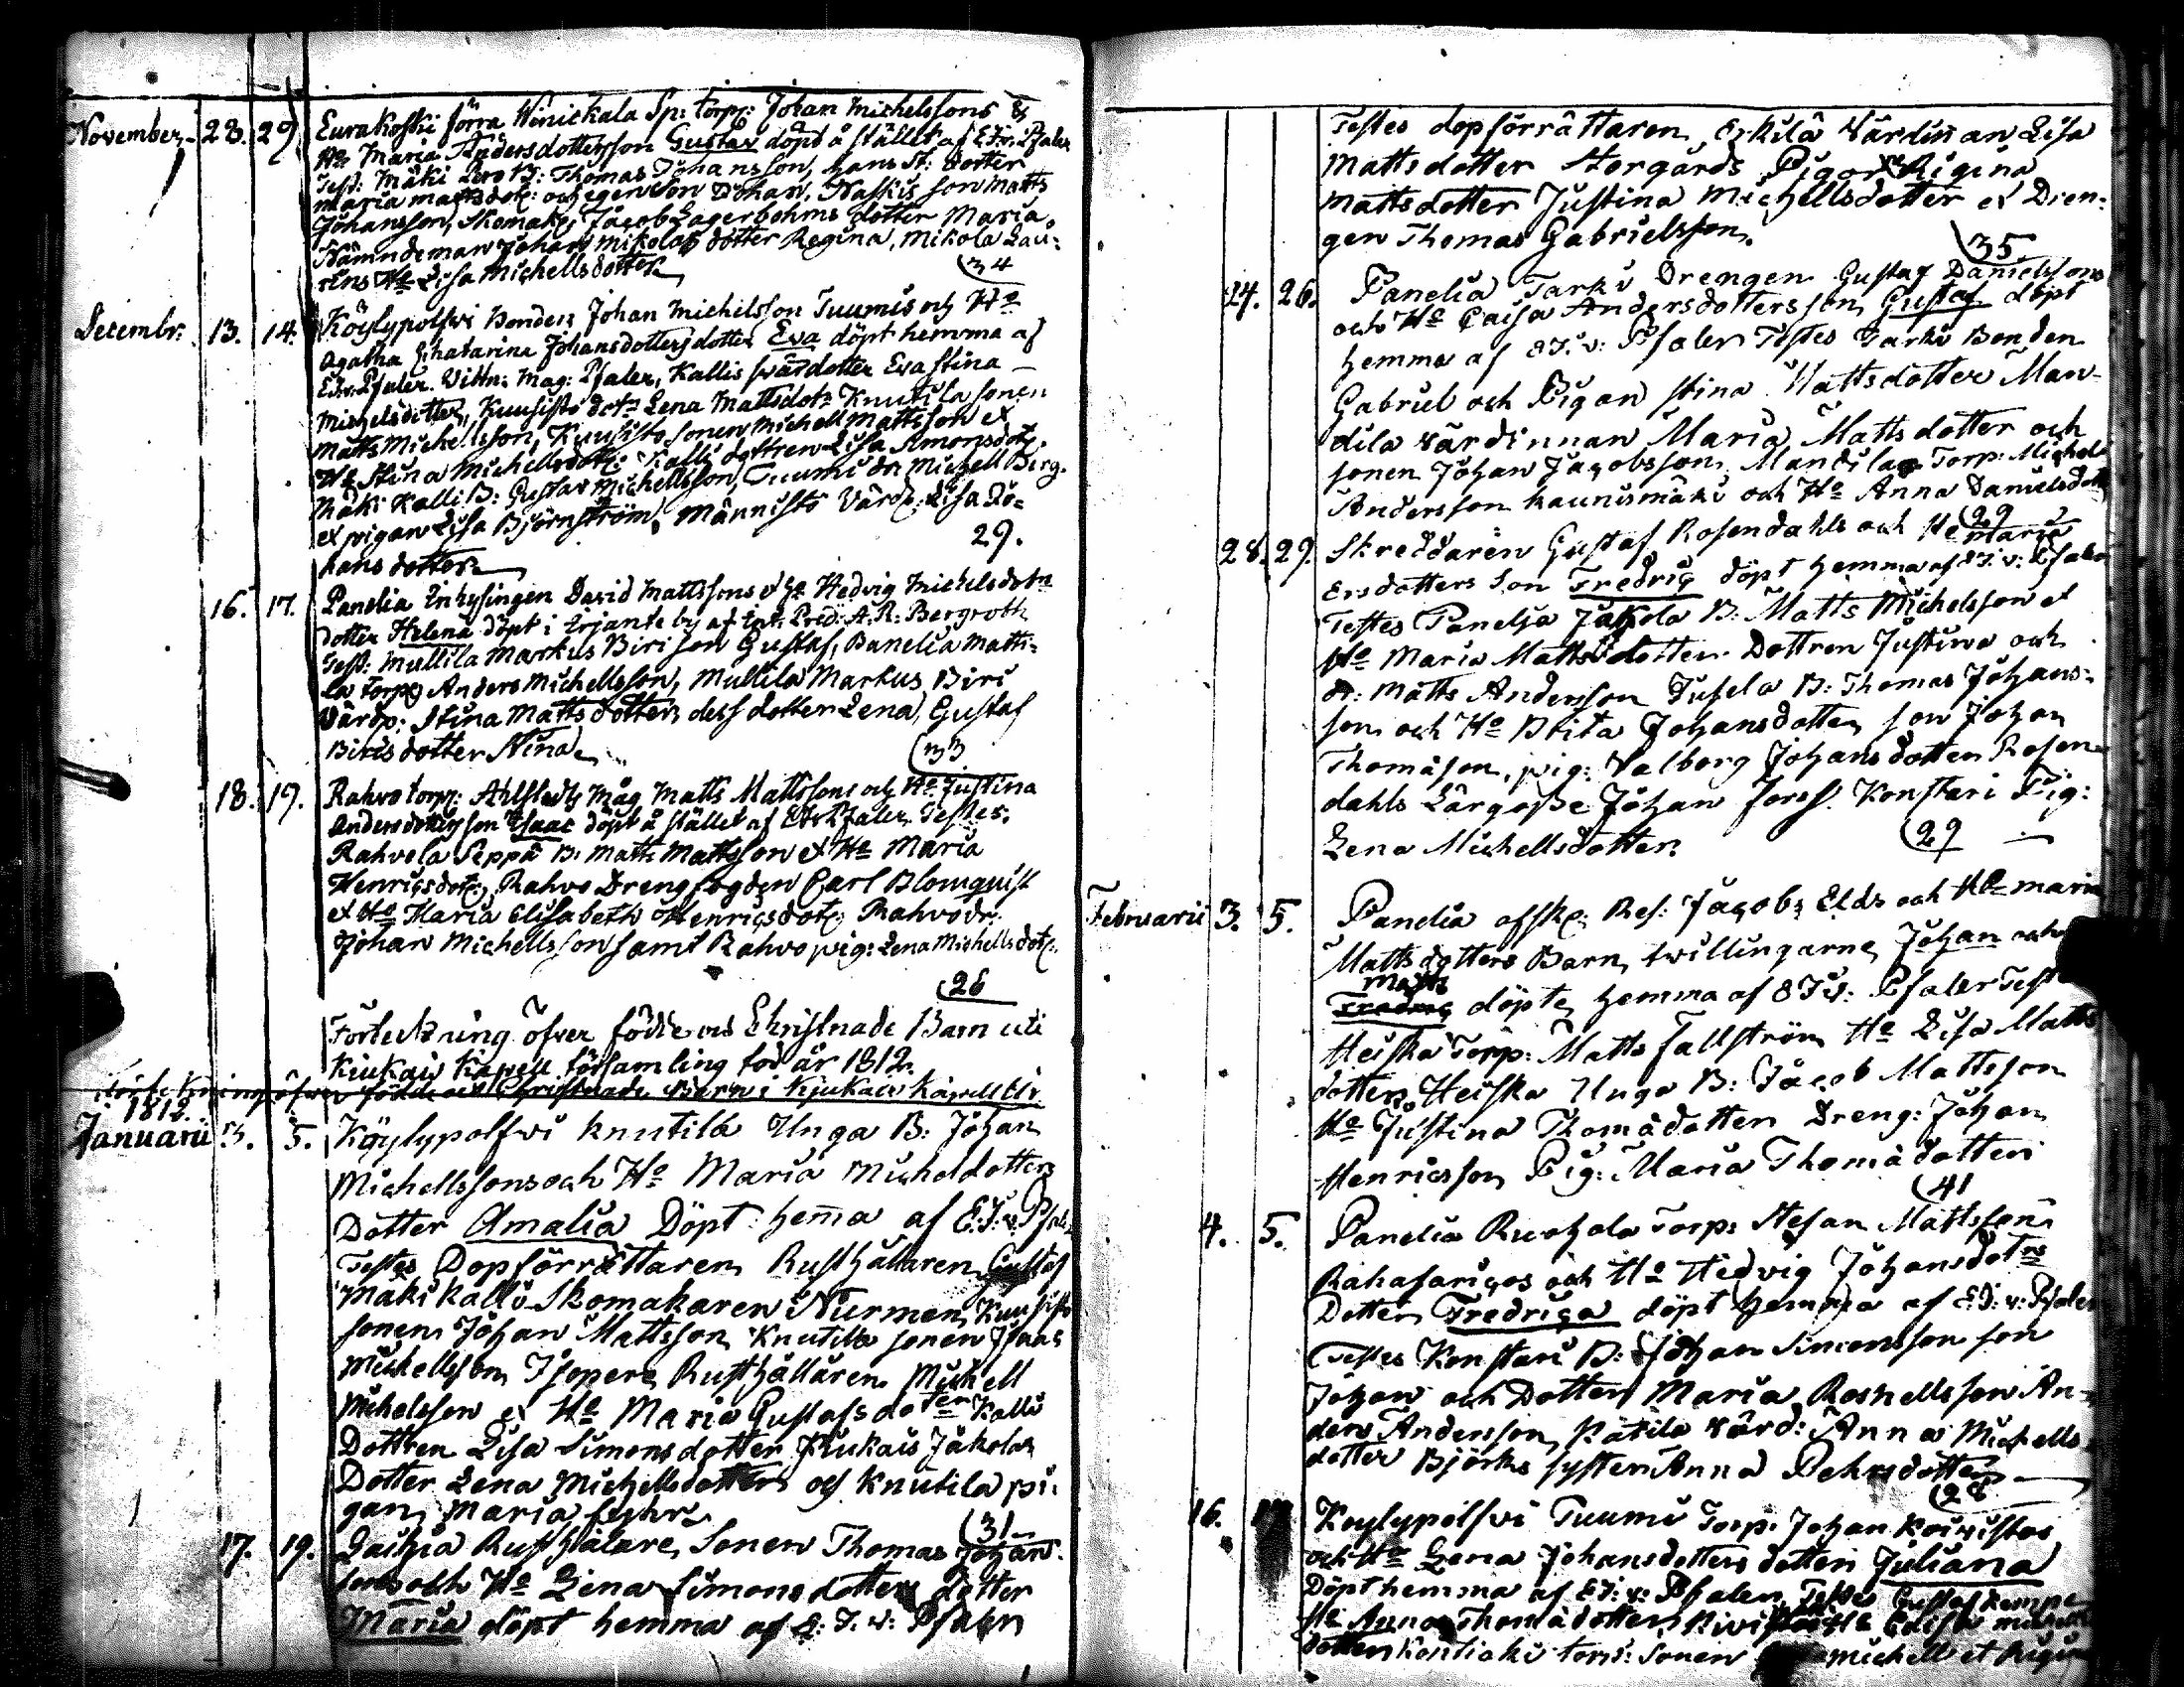 November 28. 29 Eurakoski förra Winickala Sp: torp: Johan Michelssons &
Ho Maria Andersdotters son Gustav döpt å stället af E.J.v. Pfaler
Test: Mäki Lero B: Thomas Johansson, hans dotter
Maria Mattsdotr och egen son Johan, Naskis son Matts
Johansson, Skomak: Jacob Lagerbohms dotter Maria,
Nämndeman Johan Mikolas dotter Regina, Mikola Lau-
rens Ho Lisa Michellsdotter
34
Decembr: 13. 14. Köylypolfvi Bonden Johan Michelsson Tuumis och Ho
Agatha Chatarina Johansdotters dotter Eva döpt hemma af
E.J.v. Pfaler. Vittn: Mag: Pfaler, Kallis svärdotter Eva Stina
Michelsdotter, Kuusisto dotr Lena Mattsdotr Knutila sonen
Matts Michelsson, Kuusisto sonen Michell Mattsson et
Ho Stina Michellsdotr: Kalli dottren Lisa Simonsdotr
Mäki Kalli B: Gustav Michellsson, Tuumi dr Michell Berg
et pigan Lisa Björnström, Männisto Värd: Lisa Jo-
hans dotter
29.
16. 17. Panelia Inhysingen David Mattssons & Ho Hedvig Michelsdotrs
dotter Helena döpt i Irjante by af Ext. Pred: A.R: Bergroth
Test: Mullila Markus Biri son Gustaf, Panelia Matti-
la torp: Anders Michellsson, Mullila Markus Biri
Värdp: Stina Mattsdotter, dess dotter Lena, Gustaf
Biris dotter Stina
33
18. 19. Rahvo torp: Ahlstedts Måg Matts Mattssons och Ho Justina
Andersdotters son Isaac döpt å stället af E.J.v. Pfaler Testes:
Rahvola Seppä B: Matts Mattsson et Ho Maria
Henricsdotr, Rahvo Drengfogden Carl Blomquist
et Ho Maria Elisabeth Henricsdotr Rahvo dr:
Johan Michellsson samt Rahvo pig: Lena Michellsdotr
26
Förteckning öfver födde och Christnade Barn uti
Kiukais Kapell församling för år 1812.
Förteckning öfver födde och Christnade Barn i Kiukais Kapell för
1812.
Januarii 3. 5. Köylypolfvi Knutila Unga B: Johan
Michellssons och Ho Maria Micheldotters
Dotter Amalia Döpt hem̄a af E.J.v. Pfaler
Testes Dopförrättaren Rusthållaren Gustaf
Mäki Kalli Skomakaren Nurmen Kuusisto
sonen Johan Mattsson Knutila sonen Isaac
Michellsson Isopere Rusthållaren Michell
Michelsson et Ho Maria Gustafsdoter Kalli
Dottren Lisa Simonsdotter Kiukais Jakolas
Dotter Lena Michellsdotter och Knutila pi-
gan Maria
31
17. 19. Laihia Rusthålare Sonen Thomas Johans-
sons och Ho Lena Simonsdotters dotter
Maria döpt hemma af E.J.v. Pfaler
Testes dopförrättaren Erkilä Värdinnan Lisa
Mattsdotter Storgårds Pigor Regina
Mattsdotter Justina Michellsdotter et Dren-
gen Thomas Gabrielsson.
35
24. 26. Panelia Tarki Drengen Gustaf Danielssons
och Ho Caisa Andersdotters son Gustaf döpt
hemma af E.J.v. Pfaler Testes Tarki Bonden
Gabriel och Pigan Stina Mattsdotter Man-
dila värdinnan Maria Mattsdotter och
sonen Johan Jacobsson Mandila Torp: Michel
Andersson Kaunismäki och Ho Anna Danielsdotr
29
28. 29. Skreddaren Gustaf Rosendahls och Ho Maria
Ersdotters Son Fredrig döpt hemma af E.J.v: Pfaler
Testes Panelia Jakola B: Matts Michelsson et
Ho Maria Mattsdotter Dottren Justina och
dr: Matts Andersson Tusela B: Thomas Johans-
son och Ho Brita Johansdotter son Johan
Thomason, pig: Valborg Johansdotter Rosen-
dahls Lärgosse Johan Forss. Konstari Pig:
Lena Michellsdotter.
29
Februarii 3. 5. Panelia afsk: Res: Jacobs Elds och Ho Maria
Mattsdotters Barn, tvillingarne Johan och
Matts
Fredric döpte hemma af E.J.v: Pfaler Testes
Heiska Torp: Matts Fallström Ho Lisa Matts
dotter, Heiska Unga B: Jacob Mattsson
Ho Justina Thomädotter Dreng: Johan
Henricsson Pig: Maria Thomädotter
41
4. 5. Panelia Ruohola Torp: Stefan Mattsson
och Ho Hedvig Johansdotrs
Dotter Fredrica döpt hemma af E.J:v: Pfaler
Testes Konstari B: Johan Simonsson son
Johan och Dotter Maria, Rosnells son An-
ders Andersson Kätilä värd: Anna Michells
dotter Björks syster Anna Pehrsdotter
28
16. 17 Köylypolfvi Tuumi Torp. Johan Koivistos
och Ho Lena Johansdotters dotter Juliana
Döpt hemma af E.J.v: Pfaler, Testes Gustaf Kempe
Ho Anna Thomädotter, Ho Caisa
dotter Kontiaki torp: Sonen Michell et